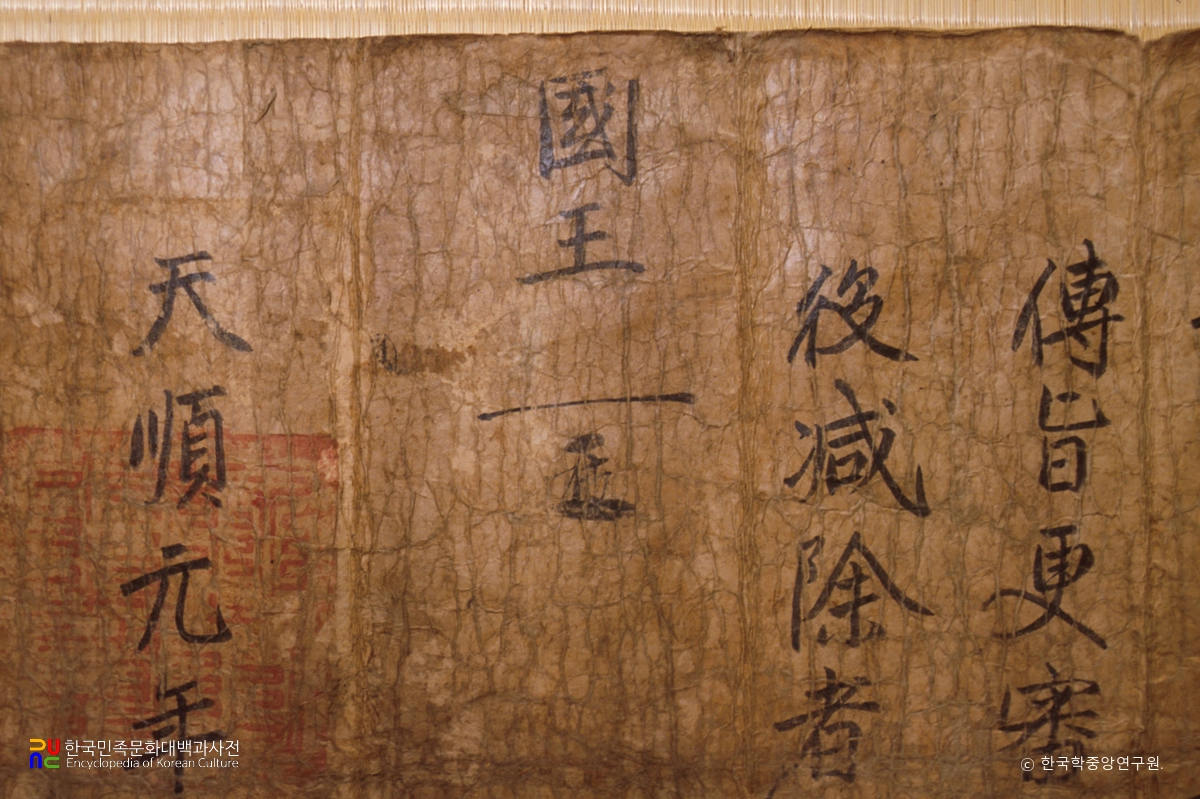 傳旨更審
後減除者
國王
天順元年
한국민족문화대백과사전
Encyclopedia of Korean Culture
ⓒ 한국학중앙연구원.